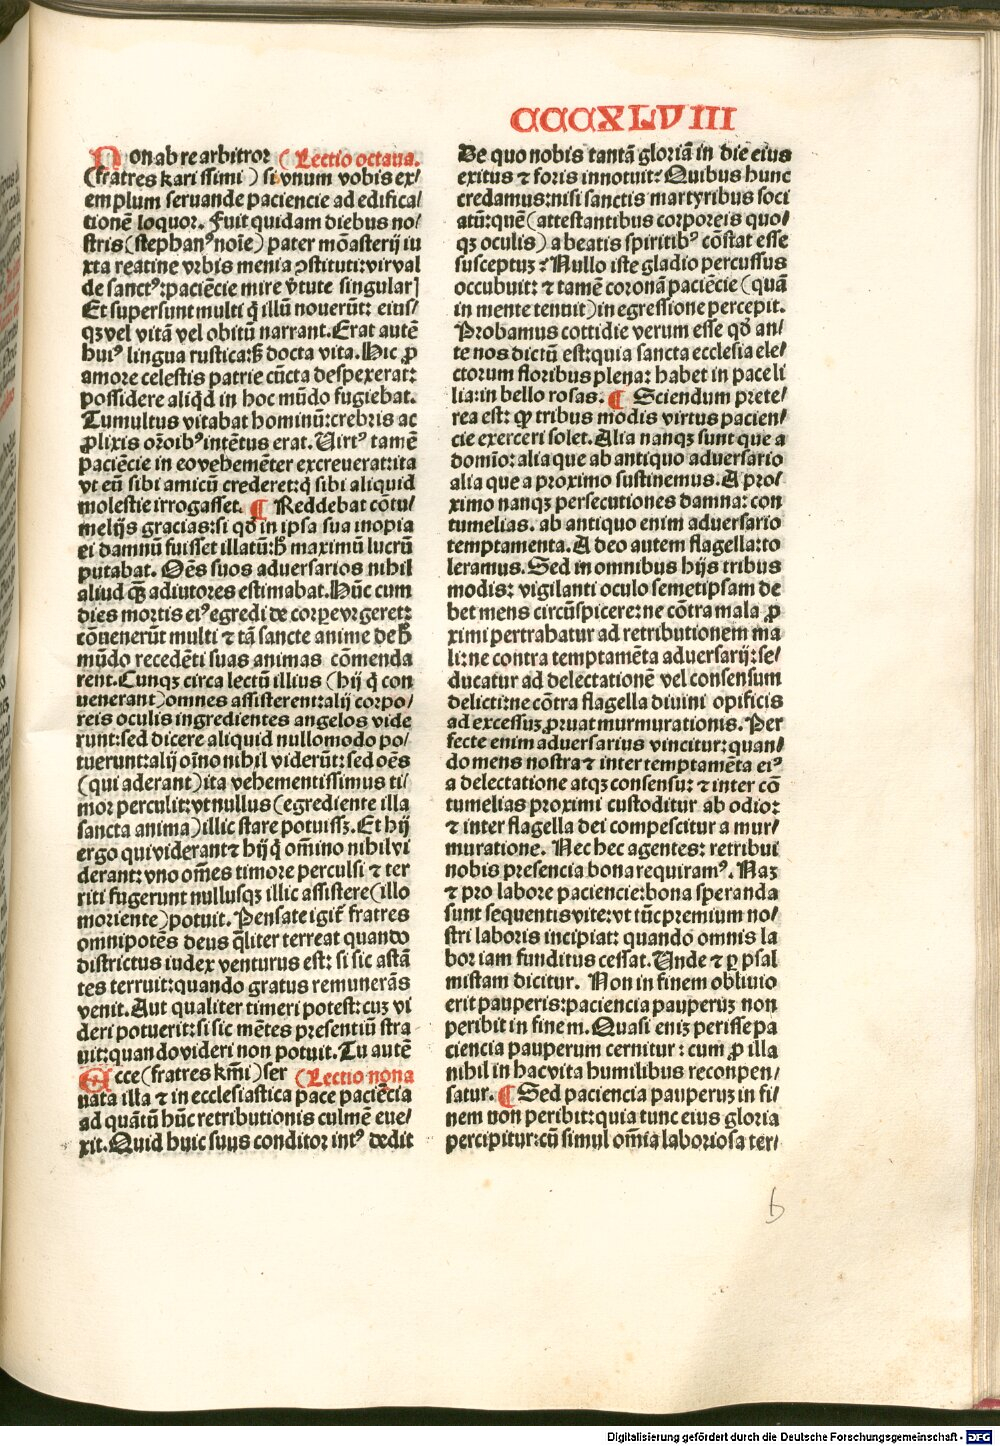 CCCXLVIII
Non ab re arbitror (Lectio octaua.
(fratres karissimi) si vnum vobis ex/
emplum seruande paciencie ad edifica/
tionē loquor. Fuit quidam diebus no/
stris (stephanꝰ noīe) pater mōasterij iu
xta reatine vrbis menia ꝯstituti: vir val
de sanctꝰ: paciēcie mire v̄tute singularꝭ
Et supersunt multi q̄ illū nouerūt: eius/
qꝫ vel vitā vel obitū narrant. Erat autē
huiꝰ lingua rustica: sꝫ docta vita. Hic ꝓ
amore celestis patrie cūcta despexerat:
possidere aliqd̄ in hoc mūdo fugiebat.
Tumultus vitabat hominū: crebris ac
ꝓlixis or̄oibꝰ intētus erat. Uirtꝰ tamē
paciēcie in eo vehemēter excreuerat: ita
vt eū sibi amicū crederet: q̄ sibi aliquid
molestie irrogasset. ¶ Reddebat cōtu/
melijs gracias: si qd̄ in ipsa sua inopia
ei damnū fuisset illatū: h̄ maximū lucrū
putabat. Oēs suos aduersarios nihil
aliud qꝫ adiutores estimabat. Hūc cum
dies mortis eiꝰ egredi de corpe vrgeret:
cōuenerūt multi ⁊ tā sancte anime de h̄
mūdo recedēti suas animas cōmenda
rent. Cunqꝫ circa lectū illius (hij q̄ con
uenerant) omnes assisterent: alij corpo/
reis oculis ingredientes angelos vide
runt: sed dicere aliquid nullomodo po/
tuerunt: alij oīno nihil viderūt: sed oēs
(qui aderant) ita vehementissimus ti/
mor perculit: vt nullus (egrediente illa
sancta anima) illic stare potuissꝫ. Et hij
ergo qui viderant ⁊ hij q̄ om̄ino nihil vi
derant: vno om̄es timore perculsi ⁊ ter
riti fugerunt nullusqꝫ illic assistere (illo
moriente) potuit. Pensate igit̄ fratres
omnipotēs deus q̄liter terreat quando
districtus iudex venturus est: si sic astā
tes terruit: quando gratus remunerās
venit. Aut qualiter timeri potest: cuꝫ vi
deri potuerit: si sic mētes presentiū stra
uit: quando videri non potuit. Tu autē
Ecce (fratres km̄i) ser (Lectio nona
uata illa ⁊ in ecclesiastica pace paciēcia
ad quātū hūc retributionis culmē eue/
xit. Quid huic suus conditor intꝰ dedit
De quo nobis tantā gloriā in die eius
exitus ⁊ foris innotuit? Quibus hunc
credamus: nisi sanctis martyribus soci
atū: quē (attestantibus corporeis quo/
qꝫ oculis) a beatis spiritibꝰ cōstat esse
susceptuꝫ? Nullo iste gladio percussus
occubuit: ⁊ tamē coronā paciēcie (quā
in mente tenuit) in egressione percepit.
Probamus cottidie verum esse qd̄ an/
te nos dictū est: quia sancta ecclesia ele/
ctorum floribus plena: habet in pace li
lia: in bello rosas. ¶ Sciendum prete/
rea est: qꝫ tribus modis virtus pacien/
cie exerceri solet. Alia nanqꝫ sunt que a
domīo: alia que ab antiquo aduersario
alia que a proximo sustinemus. A pro/
ximo nanqꝫ persecutiones damna: con
tumelias. ab antiquo enim aduersario
temptamenta. A deo autem flagella: to
leramus. Sed in omnibus hijs tribus
modis: vigilanti oculo semetipsam de
bet mens circūspicere: ne cōtra mala ꝓ
ximi pertrahatur ad retributionem ma
li: ne contra temptamēta aduersarij: se/
ducatur ad delectationē vel consensum
delicti: ne cōtra flagella diuini opificis
ad excessuꝫ ꝓruat murmurationis. Per
fecte enim aduersarius vincitur: quan/
do mens nostra ⁊ inter temptamēta eiꝰ
a delectatione atqꝫ consensu: ⁊ inter cō
tumelias proximi custoditur ab odio:
⁊ inter flagella dei compescitur a mur/
muratione. Nec hec agentes: retribui
nobis presencia bona requiramꝰ. Naꝫ
⁊ pro labore paciencie: bona speranda
sunt sequentis vite: vt tūc premium no/
stri laboris incipiat: quando omnis la
bor iam funditus cessat. Unde ⁊ ꝑ psal
mistam dicitur. Non in finem obliuio
erit pauperis: paciencia pauperuꝫ non
peribit in finem. Quasi eniꝫ perisse pa
ciencia pauperum cernitur: cum ꝓ illa
nihil in hac vita humilibus reconpen/
satur. ¶ Sed paciencia pauperuꝫ in fi/
nem non peribit: quia tunc eius gloria
percipitur: cū simul om̄ia laboriosa ter/
b
Digitalisierung gefördert durch die Deutsche Forschungsgemeinschaft - DFG